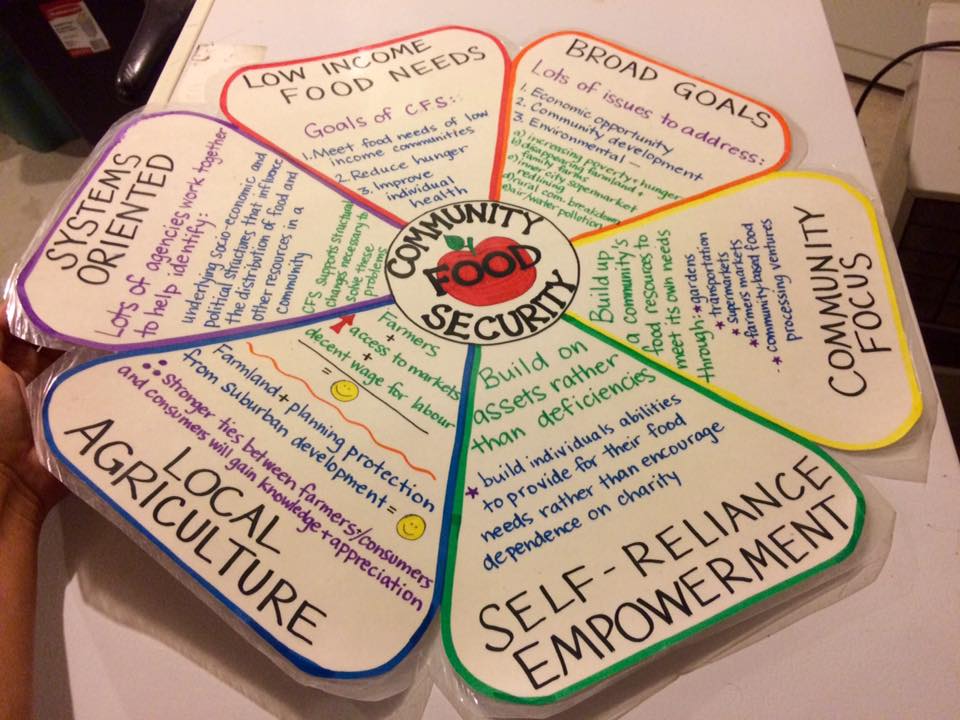 COMMUNITY
FOOD
SECURITY
LOW INCOME
FOOD NEEDS
Goals of CFS:
1. Meet food needs of low
income communities
2. Reduce hunger
3. Improve
individual
health
BROAD GOALS
Lots of issues to address:
1. Economic opportunity
2. Community development
3. Environmental –
a) increasing poverty + hunger
b) disappearing farmland +
family farms
c) inner city supermarket
redlining
d) rural com. breakdown
e) air/water pollution
COMMUNITY
FOCUS
Build up
a community's
food resources to
meet its own needs
through:
* gardens
* transportation
* supermarkets
* farmers markets
* community-based food
processing ventures
SELF-RELIANCE
EMPOWERMENT
Build on
assets rather
than deficiencies
* build individuals abilities
to provide for their food
needs rather than encourage
dependence on charity
LOCAL
AGRICULTURE
Farmers
+
access to markets
+
decent wage for labour
=
Farmland + planning protection
from suburban development =
∴ Stronger ties between farmers/consumers
and consumers will gain knowledge + appreciation
SYSTEMS
ORIENTED
Lots of agencies work together
to help identify:
underlying socio-economic and
political structures that influence
the distribution of food and
other resources in a
community
CFS supports structural
changes necessary to
solve these
problems